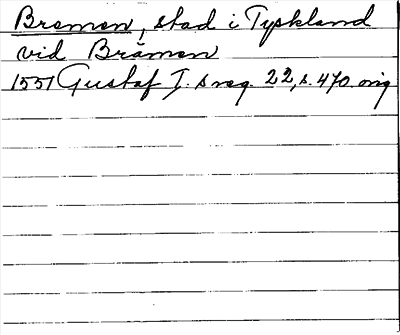 Bremen, stad i Tyskland
vid Brämen
1551 Gustaf I.s reg. 22, s. 470. orig